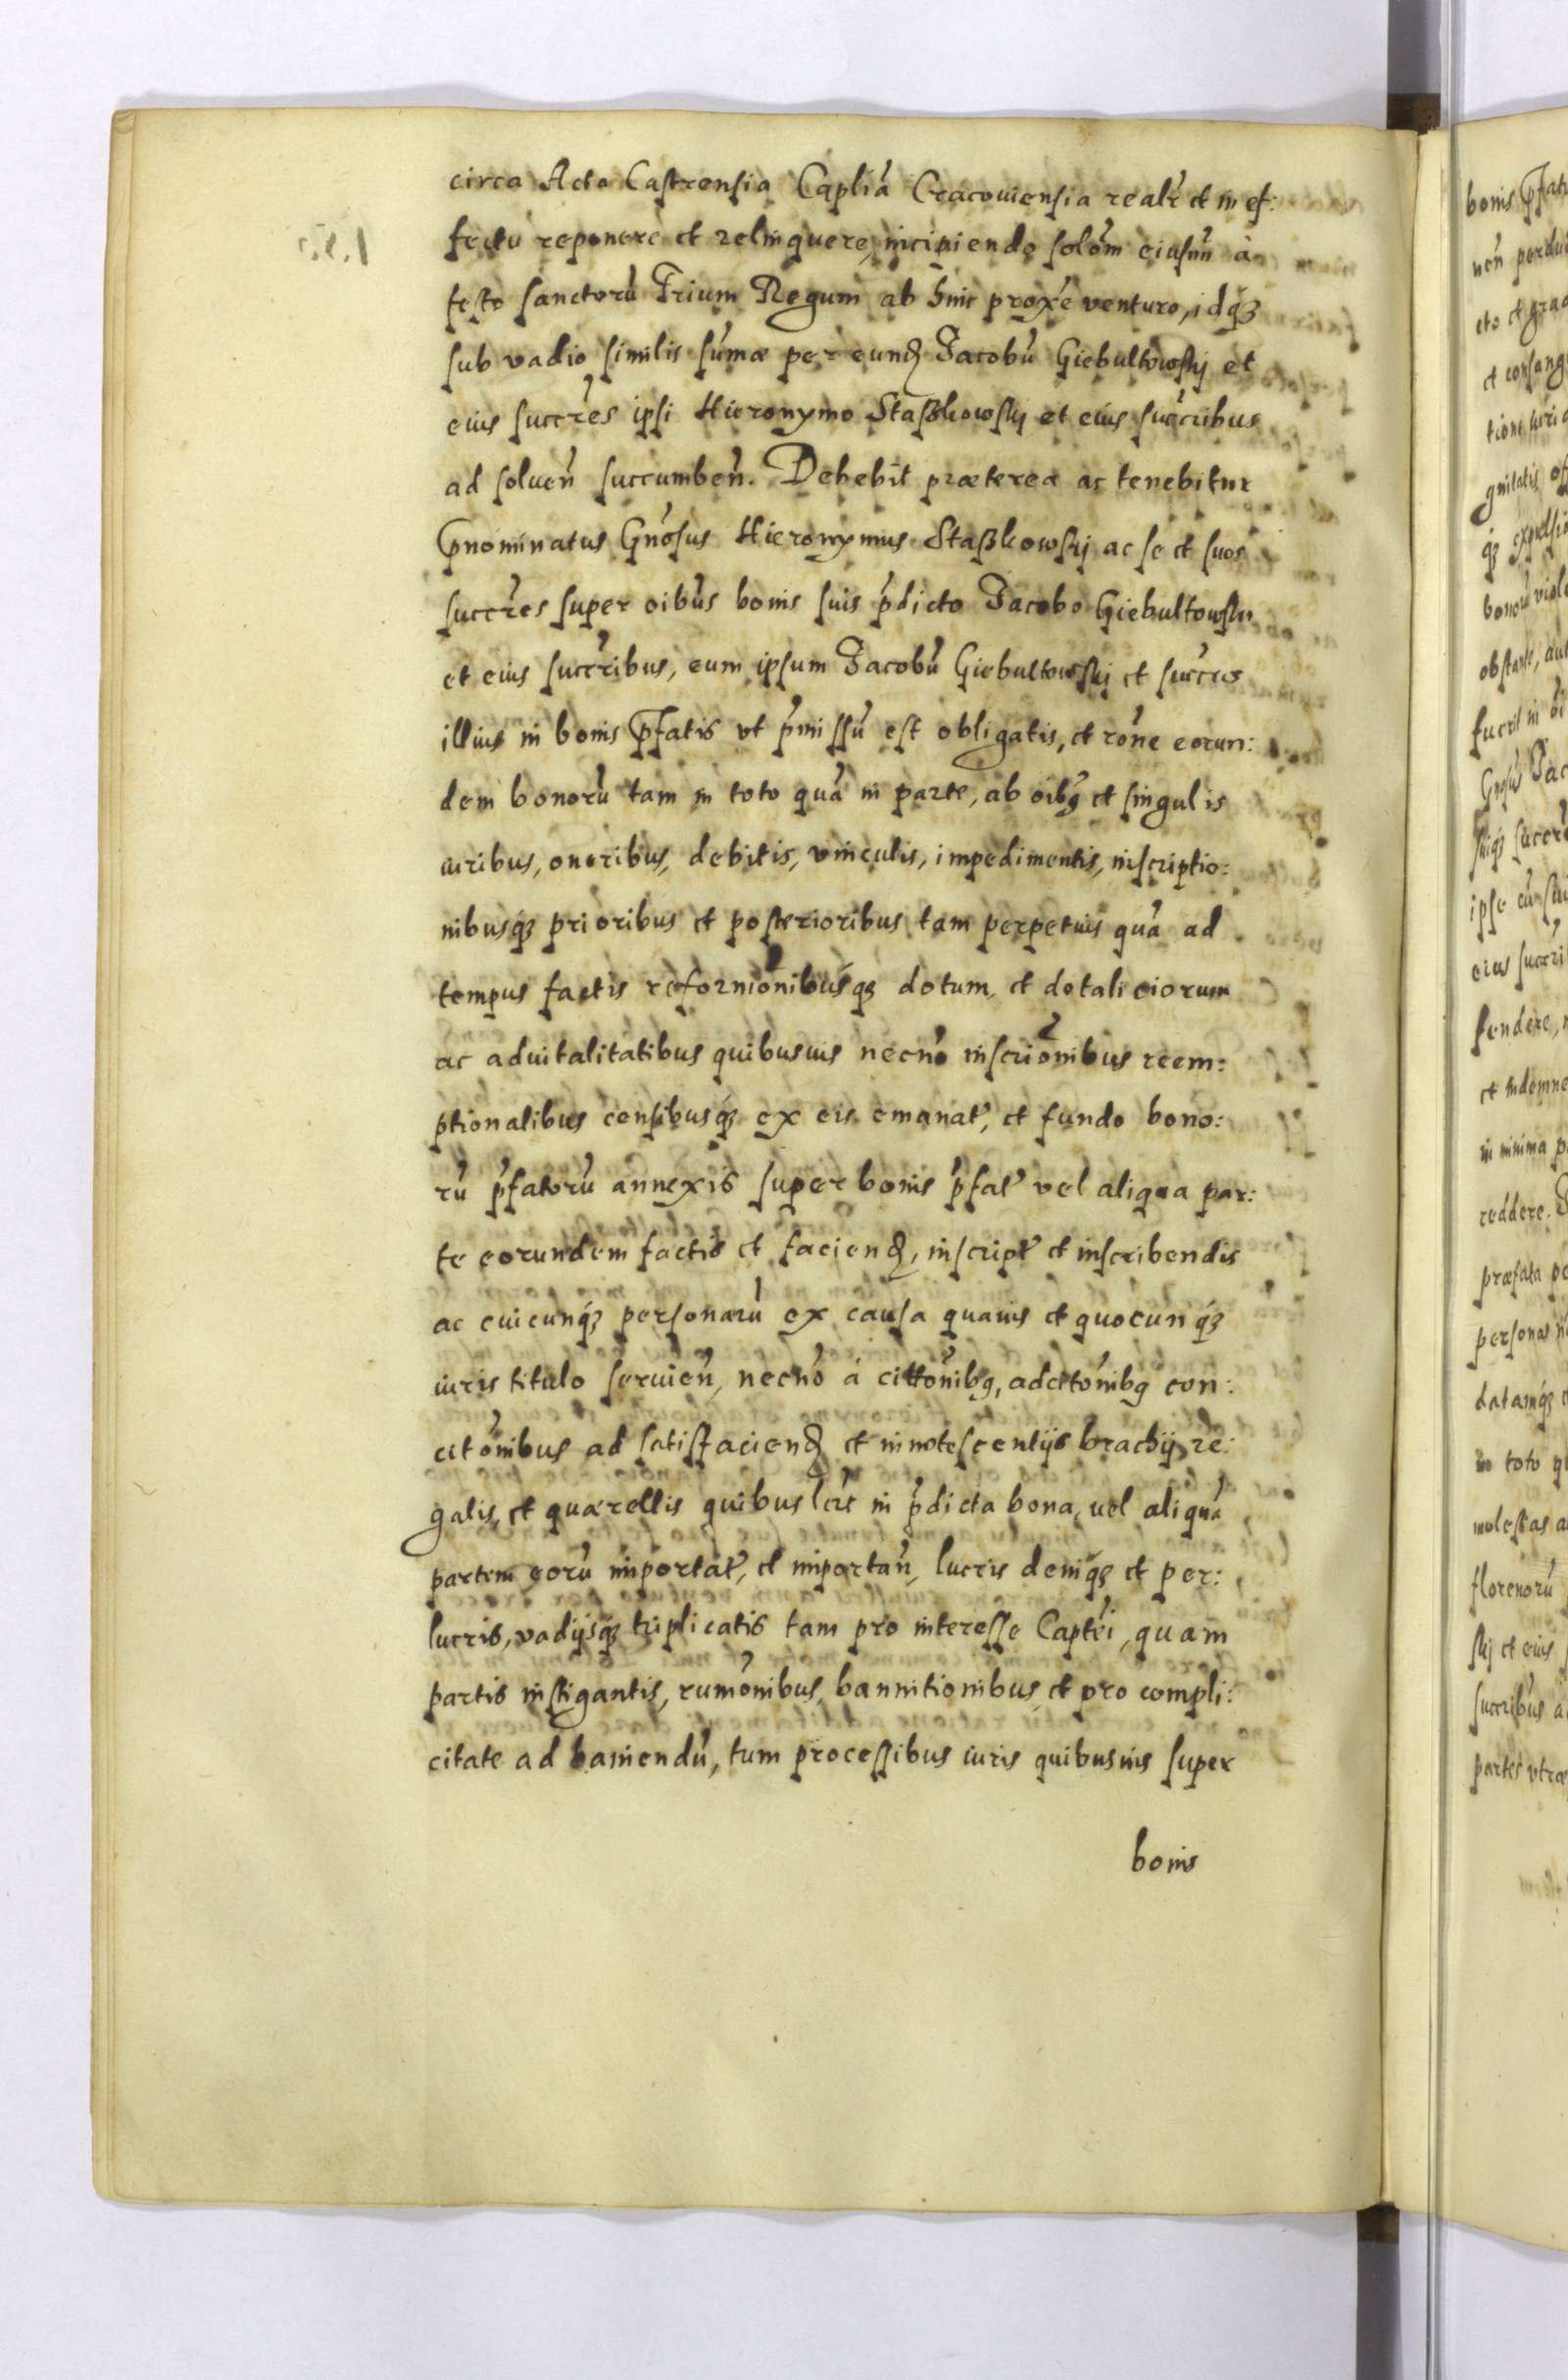 circa Acta Castrensia Caplia͂ Cracouiensia realr͂ et in ef:
fectu reponere et relinquere, incipiendo solom͂ eiusm͂ à
festo sanctorũ Trium Regum ab hinc proxe͂ venturo, idq́ꝫ
sub vadio similis sum͂æ per eund̃ Jacobũ Giebultowskÿ et
eius succres͂ ipsi Hieronymo Staßkowskÿ et eius succribus͂
ad soluen͂ succumben͂. Debebit præterea ac tenebitur
p̃nominatus Gnosus͂ Hieronymus Staßkowskÿ ac se et suos
succres͂ super oibus͂ bonis suis p͂dicto Jacobo Giebultowskÿ
et eius succribus͂, eum ipsum Jacobũ Giebultowskÿ et succres͂
illius in bonis p̃fatis vt p͂missũ est obligatis, et rone͂ eorun:
dem bonorũ tam in toto quã in parte, ab oibꝫ͂ et singulis
iuribus, oneribus, debitis, vinculis, impedimentis, inscriptio:
nibusq́ꝫ prioribus et posterioribus tam perpetuis quã ad
tempus factis reformionibus͂q́ꝫ dotum, et dotaliciorum
ac aduitalitatibus quibusuis necno͂ inscrionibus͂ reem:
ptionalibus censibusq́ꝫ ex eis emanat͂, et fundo bono:
rũ p͂fatorũ annexis super bonis p͂fat͂ vel aliqua par:
te eorundem factis et faciend̃, inscript͂ et inscribendis
ac cuicunq́ꝫ personarũ ex causa quauis et quocunq́ꝫ
iuris titulo seruien͂, necno͂ à cittonibꝫ͂, adcitonibꝫ͂ con:
citonibus͂ ad satisfaciend̃ et innotescentijs brachij re:
galis, et quærellis quibuslĩt in p͂dicta bona, vel aliquã
partem eorũ importat͂, et importan͂, lucris deniq́ꝫ et per:
lucris, vadijsq́ꝫ triplicatis tam pro interesse Capt͂i, quam
partis instigantis, rumonibus͂, bannitionibus, et pro compli:
citate ad baniendũ, tum processibus iuris quibusuis super
bonis